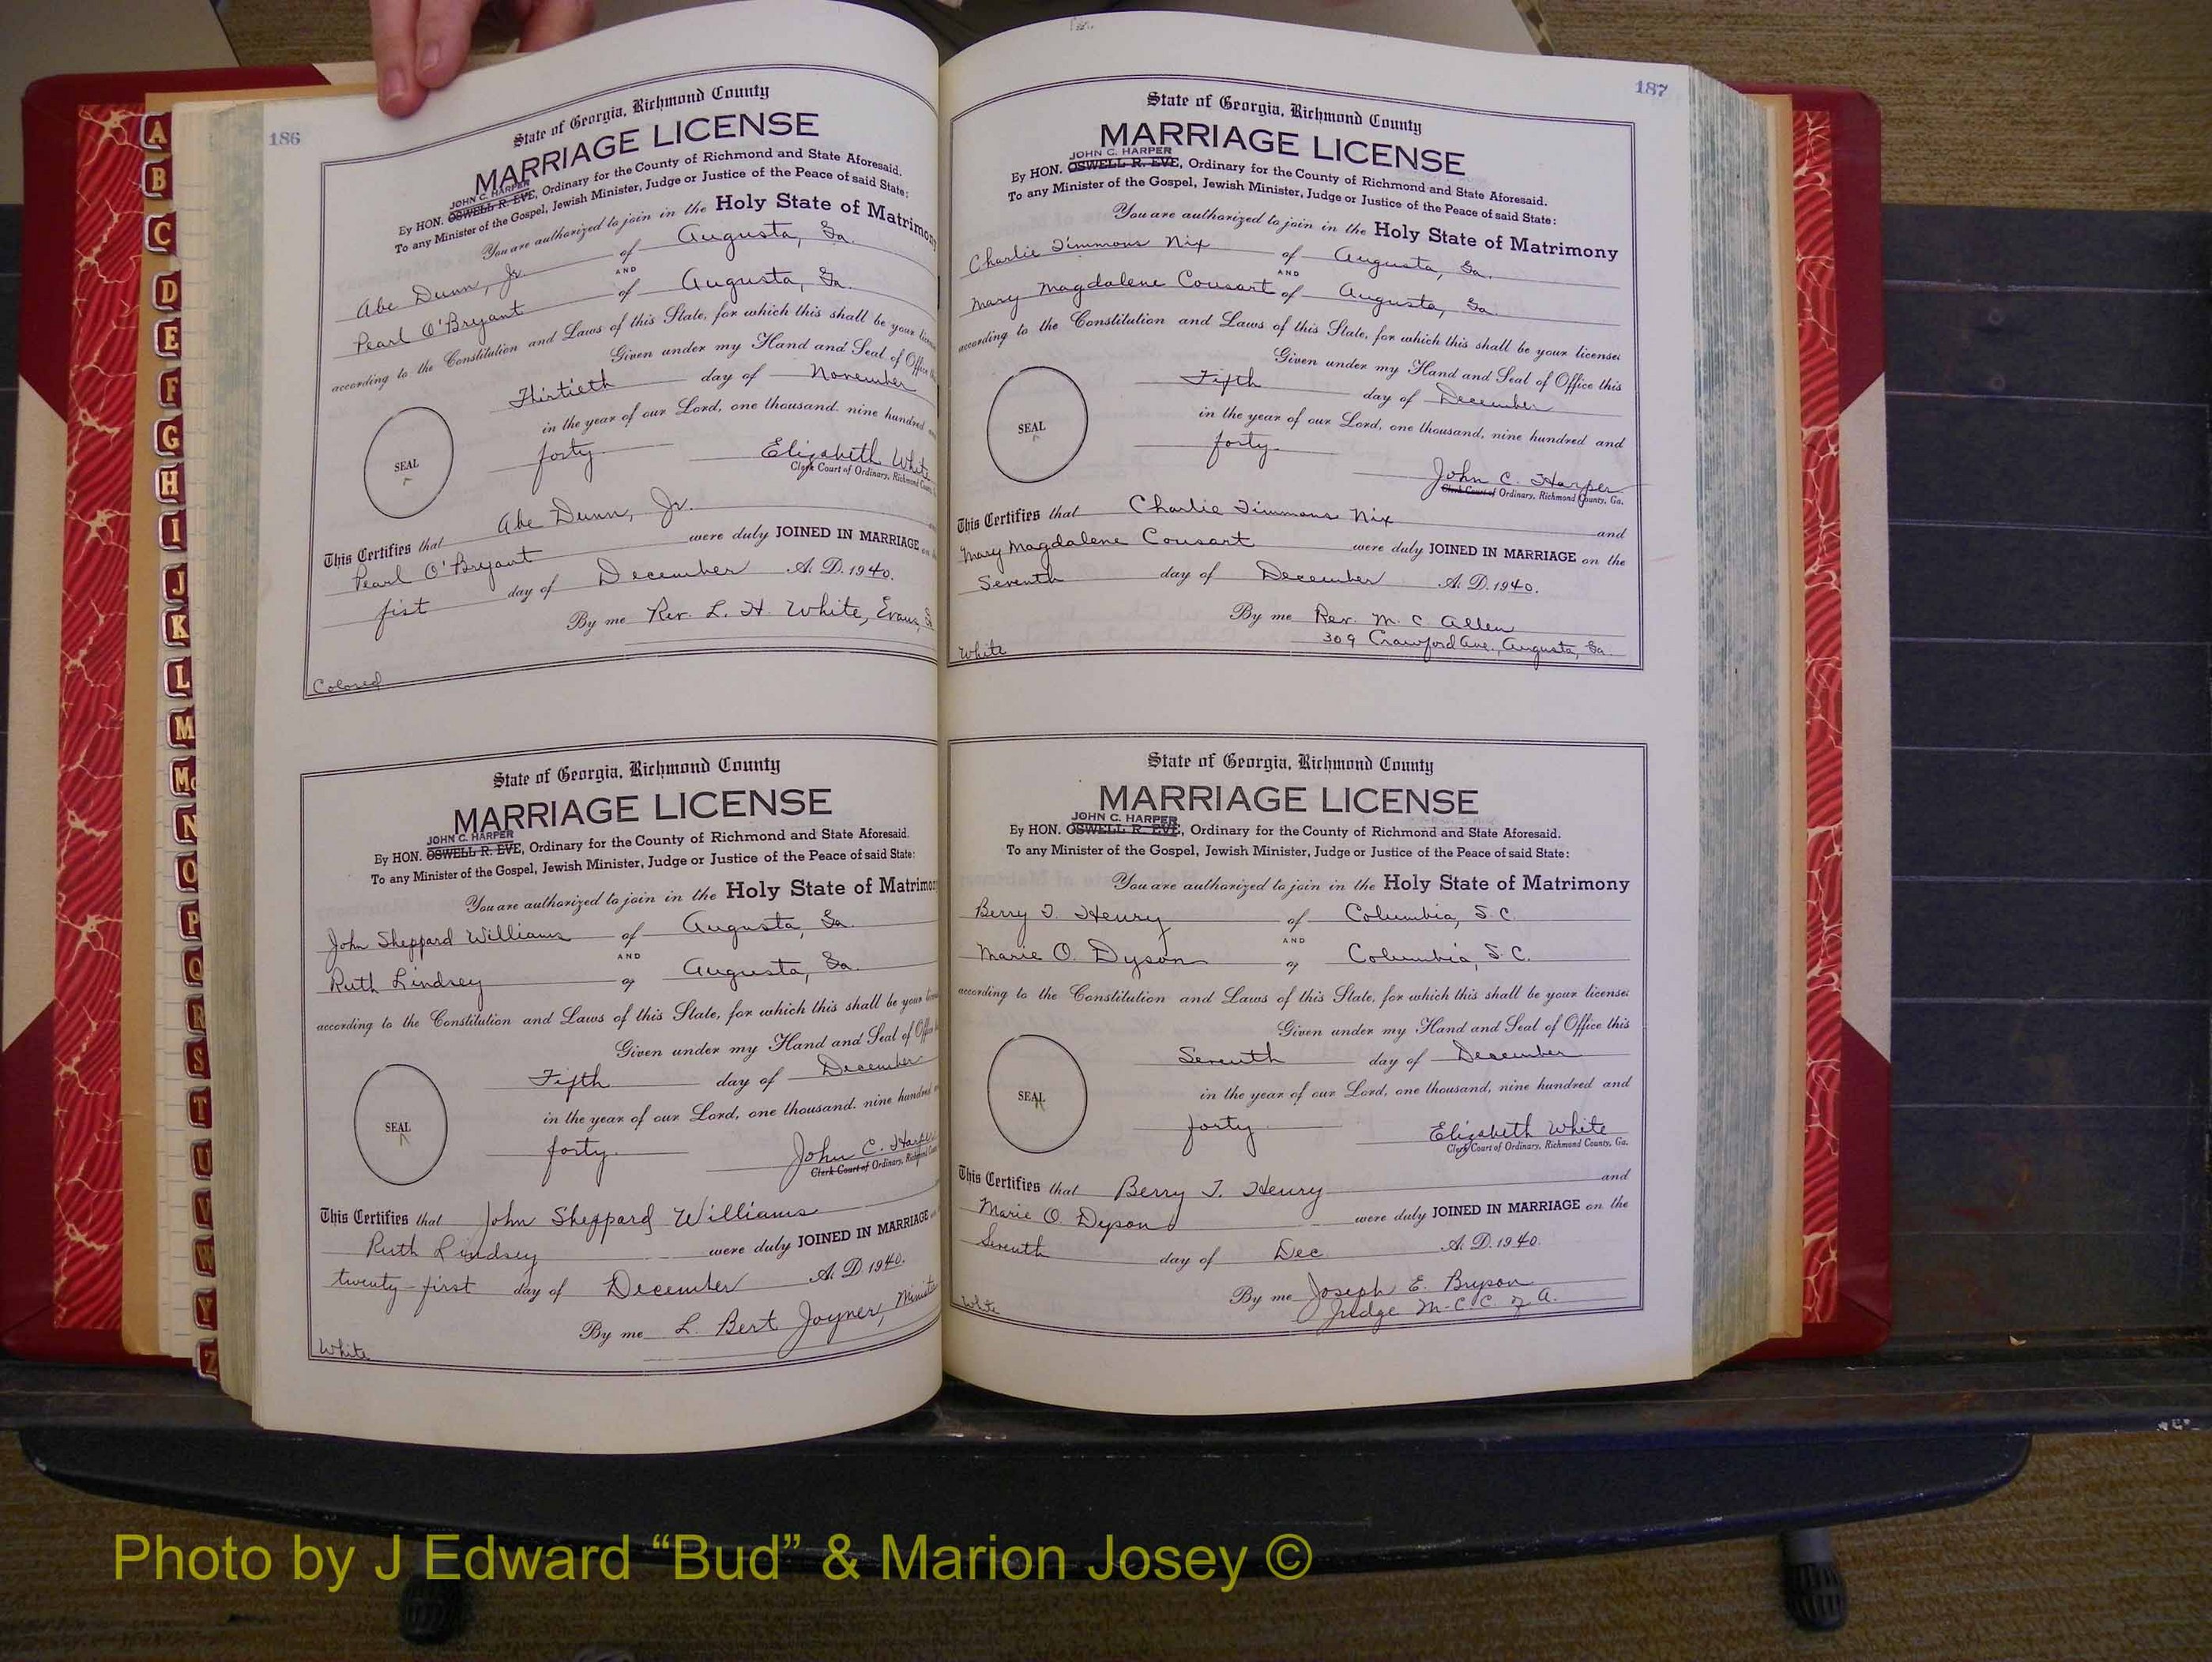 186
State of Georgia, Richmond County
MARRIAGE LICENSE
JOHN C. HARPER
By HON. OSWELL R. EVE, Ordinary for the County of Richmond and State Aforesaid.
To any Minister of the Gospel, Jewish Minister, Judge or Justice of the Peace of said State:
You are authorized to join in the Holy State of Matrimony
Abe Dunn, Jr. of Augusta, Ga.
AND
Pearl O'Bryant of Augusta, Ga.
according to the Constitution and Laws of this State, for which this shall be your
Given under my Hand and Seal of Office
Thirtieth day of November
in the year of our Lord, one thousand, nine hundred
SEAL
forty. Elizabeth White
Clerk Court of Ordinary, Richmond
This Certifies that Abe Dunn, Jr.
Pearl O'Bryant were duly JOINED IN MARRIAGE
fist day of December A. D. 1940.
By me Rev. L. H. White, Evans,
Colored
State of Georgia, Richmond County
MARRIAGE LICENSE
JOHN C. HARPER
By HON. OSWELL R. EVE, Ordinary for the County of Richmond and State Aforesaid.
To any Minister of the Gospel, Jewish Minister, Judge or Justice of the Peace of said State:
You are authorized to join in the Holy State of Matrimo
John Sheppard Williams of Augusta, Ga.
AND
Ruth Lindsey of Augusta, Ga.
according to the Constitution and Laws of this State, for which this shall be your
Given under my Hand and Seal of
Fifth day of December
in the year of our Lord, one thousand, nine hundred
SEAL
forty. John C. Harper
Clerk Court of Ordinary, Richmond
This Certifies that John Sheppard Williams
Ruth Lindsey were duly JOINED IN MARRIAGE
twenty-first day of December A. D. 1940.
By me L. Bert Joyner, Minister
White
187
State of Georgia, Richmond County
MARRIAGE LICENSE
JOHN C. HARPER
By HON. OSWELL R. EVE, Ordinary for the County of Richmond and State Aforesaid.
To any Minister of the Gospel, Jewish Minister, Judge or Justice of the Peace of said State:
You are authorized to join in the Holy State of Matrimony
Charlie Timmons Nix of Augusta, Ga.
AND
Mary Magdalene Cousart of Augusta, Ga.
according to the Constitution and Laws of this State, for which this shall be your license:
Given under my Hand and Seal of Office this
Fifth day of December
in the year of our Lord, one thousand, nine hundred and
SEAL
forty. John C. Harper
Clerk Court of Ordinary, Richmond County, Ga.
This Certifies that Charlie Timmons Nix and
Mary Magdalene Cousart were duly JOINED IN MARRIAGE on the
Seventh day of December A. D. 1940.
By me Rev. M. C. Allen
309 Crawford Ave., Augusta, Ga.
White
State of Georgia, Richmond County
MARRIAGE LICENSE
JOHN C. HARPER
By HON. OSWELL R. EVE, Ordinary for the County of Richmond and State Aforesaid.
To any Minister of the Gospel, Jewish Minister, Judge or Justice of the Peace of said State:
You are authorized to join in the Holy State of Matrimony
Berry T. Henry of Columbia, S. C.
AND
Marie O. Dyson of Columbia, S. C.
according to the Constitution and Laws of this State, for which this shall be your license:
Given under my Hand and Seal of Office this
Seventh day of December
in the year of our Lord, one thousand, nine hundred and
SEAL
forty Elizabeth White
Clerk Court of Ordinary, Richmond County, Ga.
This Certifies that Berry T. Henry and
Marie O. Dyson were duly JOINED IN MARRIAGE on the
Seventh day of Dec A. D. 1940.
By me Joseph E. Bryson
Judge M.C.C. of A.
White
A
B
C
D
E
F
G
H
I
J
K
L
M
Mc
N
O
P
Q
R
S
T
U
V
W
Y
Z
Photo by J Edward “Bud” & Marion Josey ©